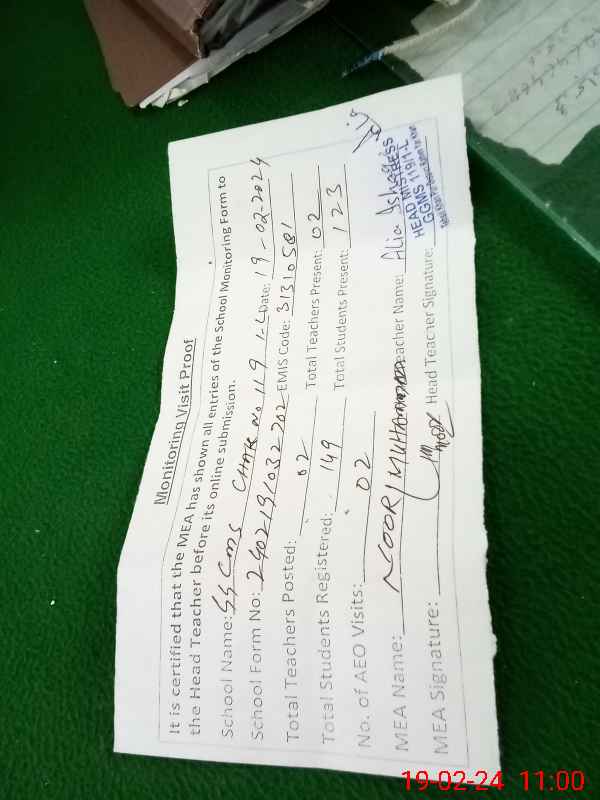 Monitoring Visit Proof
It is certified that the MEA has shown all entries of the School Monitoring Form to
the Head Teacher before its online submission.
School Name: GGCMS CHAK No 119 1-L Date: 19-02-2024
School Form No: 240219103 2702 EMIS Code: 31310581
Total Teachers Posted: 02 Total Teachers Present: 02
Total Students Registered: 149 Total Students Present: 123
No. of AEO Visits: 02
MEA Name: NOOR MUHAMMAD Teacher Name: Alia
MEA Signature: Head Teacher Signature:
HEAD MISTRESS
GGMS 119/1-L
19-02-24 11:00